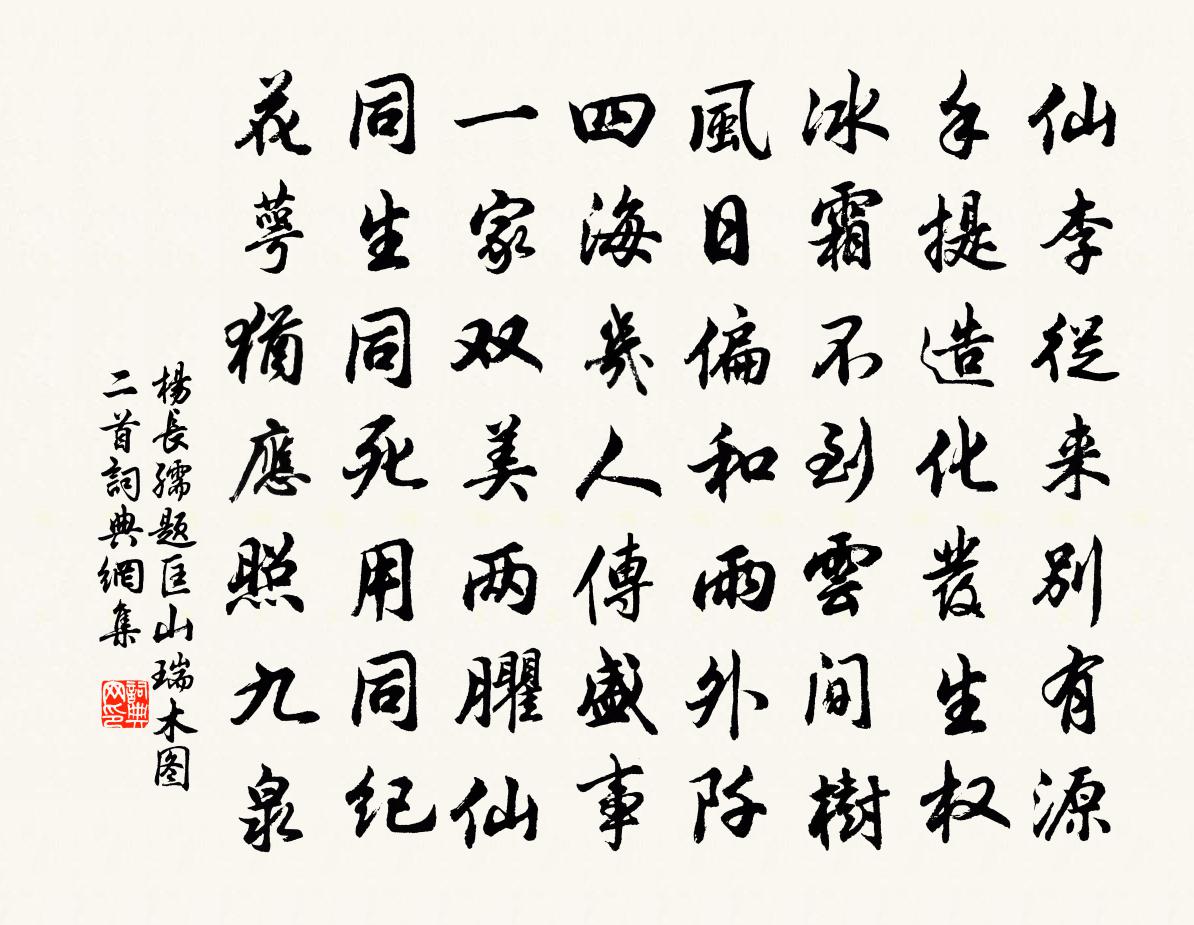 仙李從来别有源
手提造化發生权
冰霜不到雲間樹
風日偏和雨外阡
四海幾人傳盛事
一家双美两臞仙
同生同死用同纪
花萼猶應照九泉
楊長孺题匡山瑞木图
二首詞典網集
詞典网印